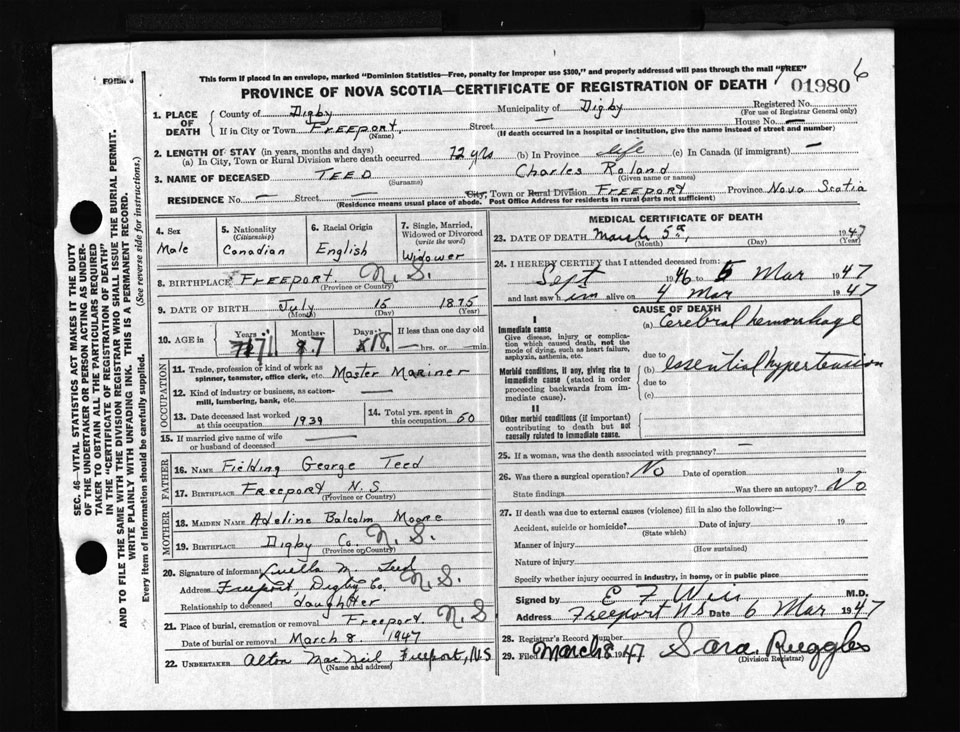 FORM 6
This form if placed in an envelope, marked "Dominion Statistics—Free, penalty for improper use $300," and properly addressed will pass through the mail "FREE"
PROVINCE OF NOVA SCOTIA—CERTIFICATE OF REGISTRATION OF DEATH
01980 6
SEC. 46—VITAL STATISTICS ACT MAKES IT THE DUTY
OF THE UNDERTAKER OR PERSON ACTING AS UNDER-
TAKER TO OBTAIN ALL THE PARTICULARS REQUIRED
IN THE "CERTIFICATE OF REGISTRATION OF DEATH"
AND TO FILE THE SAME WITH THE DIVISION REGISTRAR WHO SHALL ISSUE THE BURIAL PERMIT.
WRITE PLAINLY WITH UNFADING INK. THIS IS A PERMANENT RECORD.
Every item of Information should be carefully supplied. (See reverse side for instructions.)
1. PLACE OF DEATH
County of Digby Municipality of Digby Registered No.
(For use of Registrar General only)
If in City or Town FREEPORT, Street — House No. —
(Name) (If death occurred in a hospital or institution, give the name instead of street and number)
2. LENGTH OF STAY (in years, months and days)
(a) In City, Town or Rural Division where death occurred 72 yrs (b) In Province life (c) In Canada (if immigrant) —
3. NAME OF DECEASED TEED Charles Roland
(Surname) (Given name or names)
RESIDENCE No. — Street City, Town or Rural Division FREEPORT Province Nova Scotia
(Residence means usual place of abode. Post Office Address for residents in rural parts not sufficient)
4. Sex
Male
5. Nationality
(Citizenship)
Canadian
6. Racial Origin
English
7. Single, Married,
Widowed or Divorced
(write the word)
Widower
8. BIRTHPLACE FREEPORT. N.S.
(Province or Country)
9. DATE OF BIRTH July 15 1875
(Month) (Day) (Year)
10. AGE in Years 71 Months 7 Days 18 If less than one day old
— hrs. or — min.
OCCUPATION
11. Trade, profession or kind of work as
spinner, teamster, office clerk, etc. Master Mariner
12. Kind of industry or business, as cotton-
mill, lumbering, bank, etc. —
13. Date deceased last worked
at this occupation 1939
14. Total yrs. spent in
this occupation 50
15. If married give name of wife
or husband of deceased —
FATHER
16. NAME Fielding George Teed
17. BIRTHPLACE FREEPORT N.S.
(Province or Country)
MOTHER
18. MAIDEN NAME Adeline Balcolm Moore
19. BIRTHPLACE Digby Co. N.S.
(Province or Country)
20. Signature of informant Luella M. Teed
Address Freeport, Digby Co. N.S.
Relationship to deceased daughter
21. Place of burial, cremation or removal Freeport N.S
Date of burial or removal March 8. 1947
22. UNDERTAKER Alton MacNeil Freeport, N.S
(Name and address)
MEDICAL CERTIFICATE OF DEATH
23. DATE OF DEATH March 5th, 1947
(Month) (Day) (Year)
24. I HEREBY CERTIFY that I attended deceased from:
Sept 1946 to 5 Mar 1947
and last saw him alive on 4 Mar 1947
CAUSE OF DEATH
I
Immediate cause
Give disease, injury or complica-
tion which caused death, not the
mode of dying, such as heart failure,
asphyxia, asthenia, etc.
(a) Cerebral hemorrhage
due to
Morbid conditions, if any, giving rise to
immediate cause (stated in order
proceeding backwards from im-
mediate cause).
(b) essential hypertension
due to
(c)
II
Other morbid conditions (if important)
contributing to death but not
causally related to immediate cause.
25. If a woman, was the death associated with pregnancy? —
26. Was there a surgical operation? No Date of operation 19
State findings Was there an autopsy? No
27. If death was due to external causes (violence) fill in also the following:—
Accident, suicide or homicide? Date of injury 19
(State which)
Manner of injury
(How sustained)
Nature of injury
Specify whether injury occurred in industry, in home, or in public place
Signed by E F Weir M.D.
Address Freeport NS Date 6 Mar 1947
28. Registrar's Record Number
29. Filed March 8 1947 Sara Ruggles
(Division Registrar)